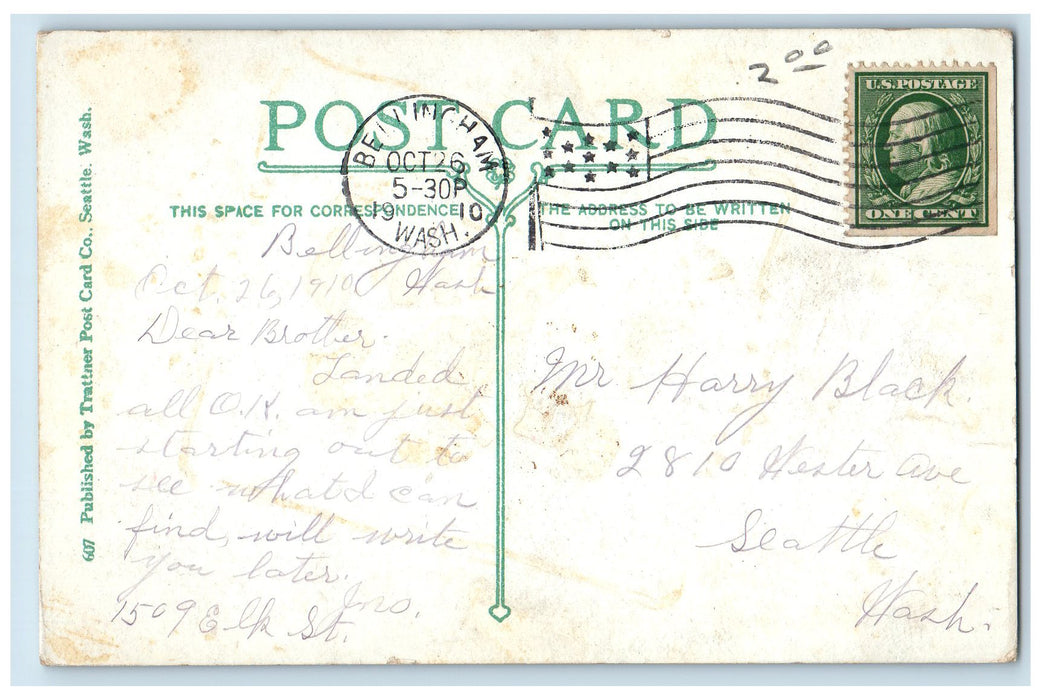 2 00
U.S. POSTAGE
ONE CENT
POST CARD
BELLINGHAM
OCT 26
5-30P
1910
WASH.
THIS SPACE FOR CORRESPONDENCE
THE ADDRESS TO BE WRITTEN
ON THIS SIDE
607 Published by Trattner Post Card Co., Seattle. Wash.
Bellingham
Oct. 26, 1910 Wash.
Dear Brother.
Landed
all O.K. am just
starting out to
see what I can
find, will write
you later.
Jno.
1509 Elk St.
Mr Harry Black.
2810 Wester Ave
Seattle
Wash.